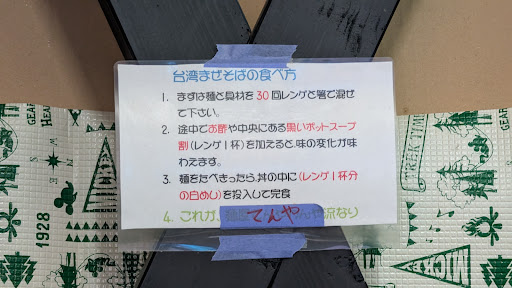 台湾まぜそばの食べ方
1. まずは麺と具材を30回レンゲと箸で混ぜ
て下さい。
2. 途中でお酢や中央にある黒いポットスープ
割(レンゲ1杯)を加えると、味の変化が味
わえます。
3. 麺をたべきったら、丼の中に(レンゲ1杯分
の白めし)を投入して完食
4. これが、
てんや
流なり
1928
TREK TIME
MICKEY
GEAR